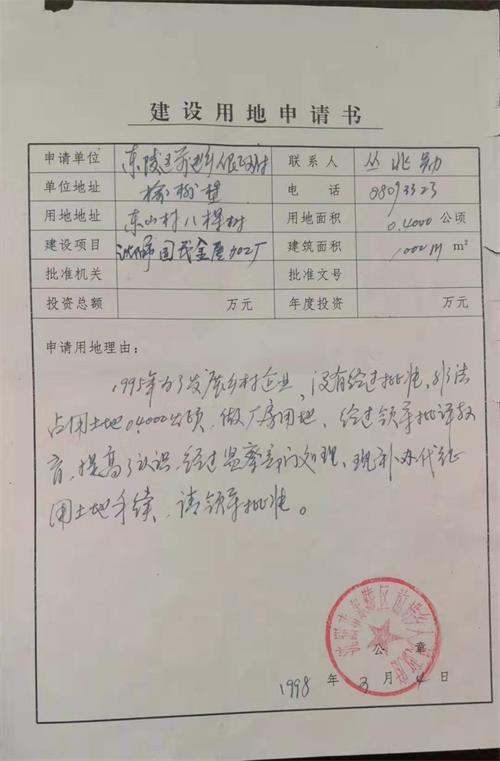 建设用地申请书
申请单位 东陵区前进乡 联系人 丛兆勤
单位地址 电话 88093323
用地地址 东山村八棵树 用地面积 0.4000 公顷
建设项目 沈阳国茂金属加工厂 建筑面积 1000 m²
批准机关 批准文号
投资总额 万元 年度投资 万元
申请用地理由:
1995年为了发展乡村企业,没有经过批准,非法
占用土地0.4000公顷,做厂房用地,经过领导批评教
育,提高了认识,经过监察部门处理,现补办代征
用土地手续,请领导批准。
公章
1998 年 3 月 4 日